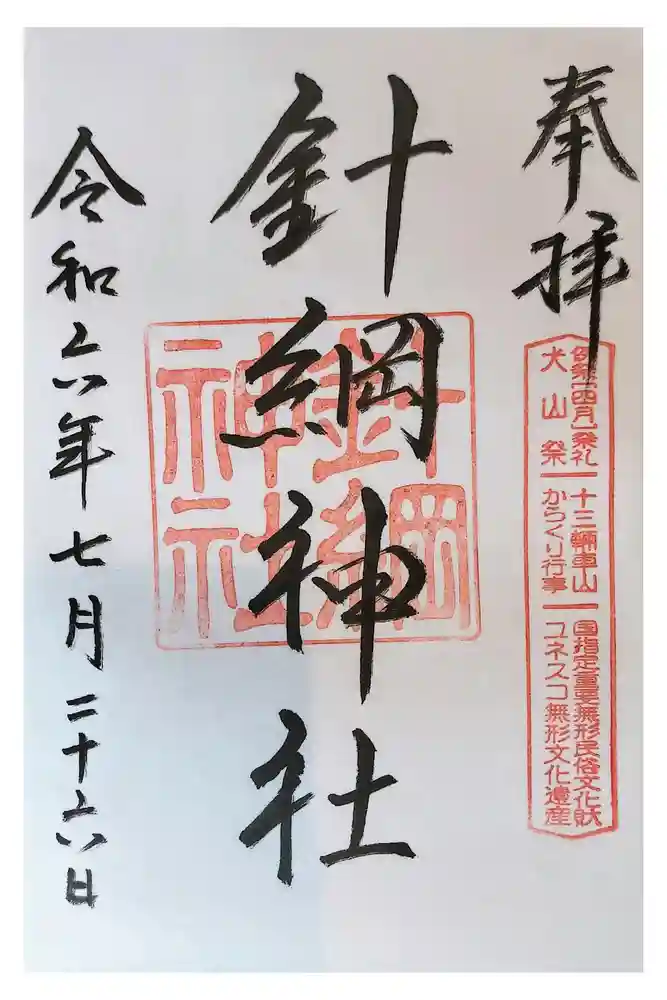 奉拝
例祭(四月)祭礼 十三輛車山 国指定重要無形民俗文化財
犬山祭 からくり行事 ユネスコ無形文化遺産
針綱神社
針綱
神社
令和六年七月二十六日